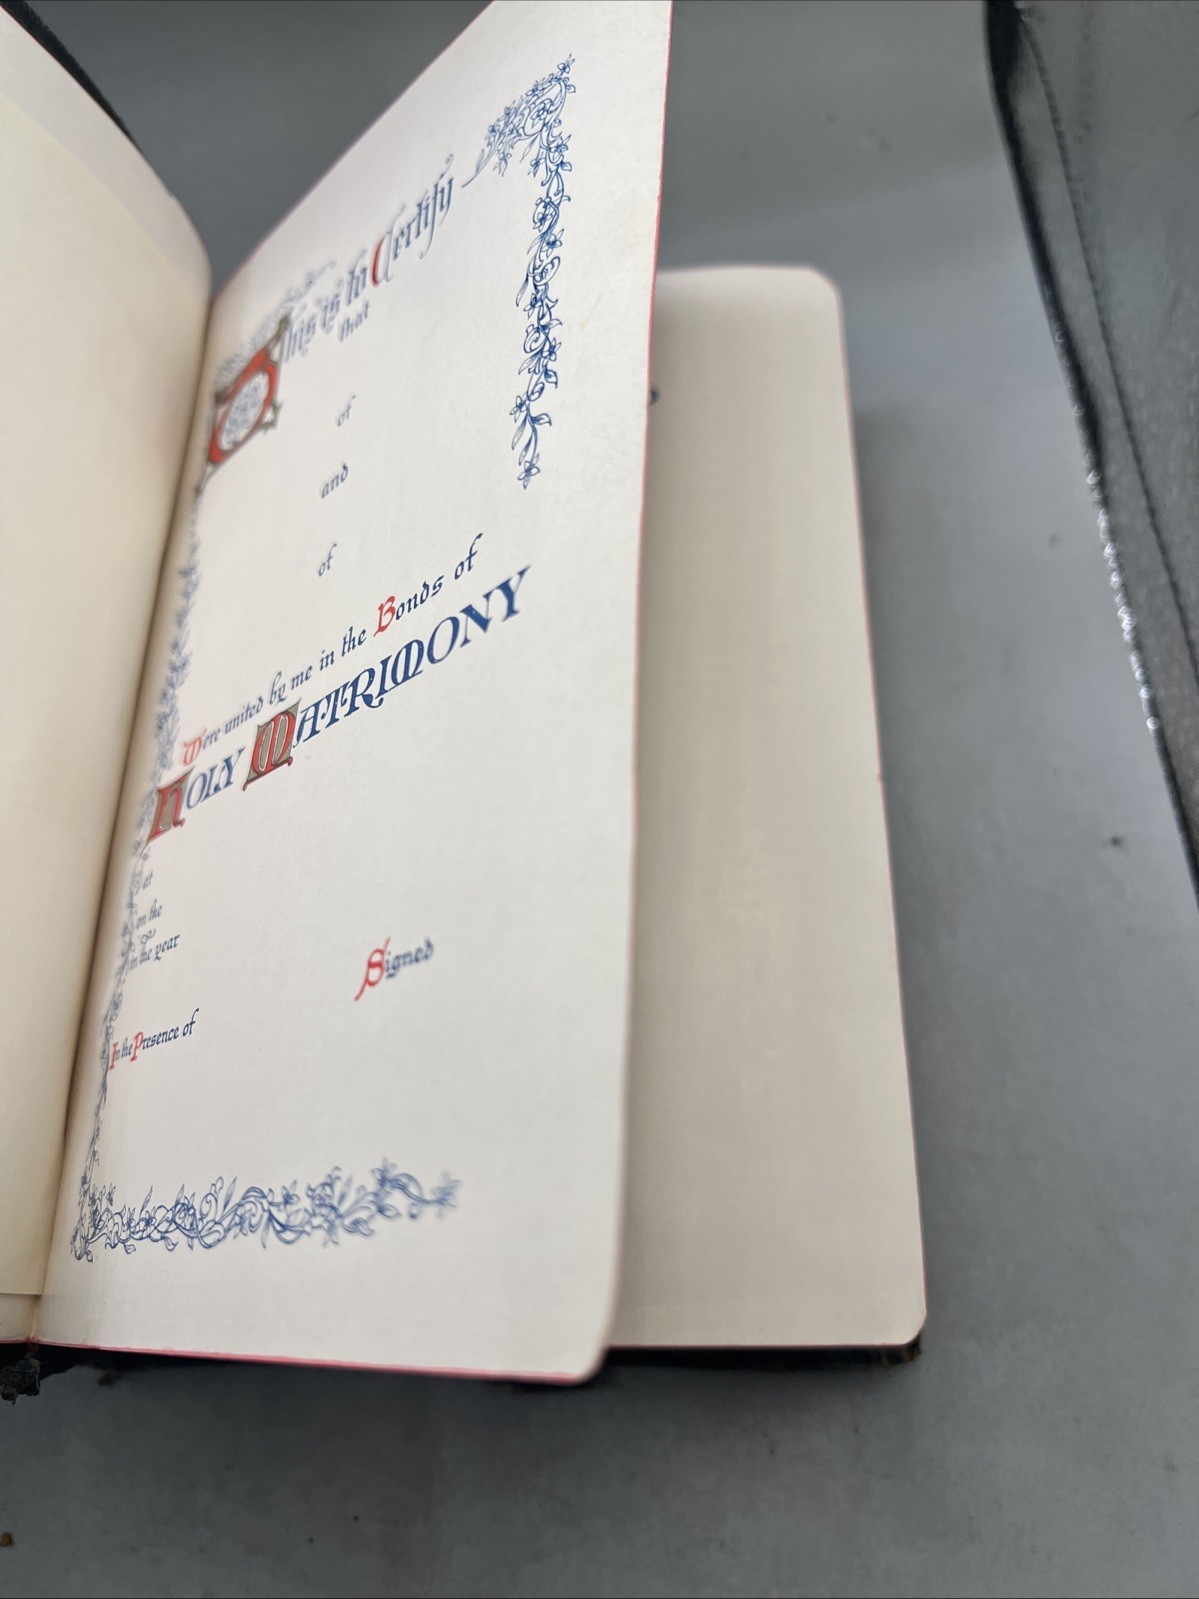 This is to Certify
that
of
and
of
Were united by me in the Bonds of
HOLY MATRIMONY
at
on the
in the year
Signed
In the Presence of